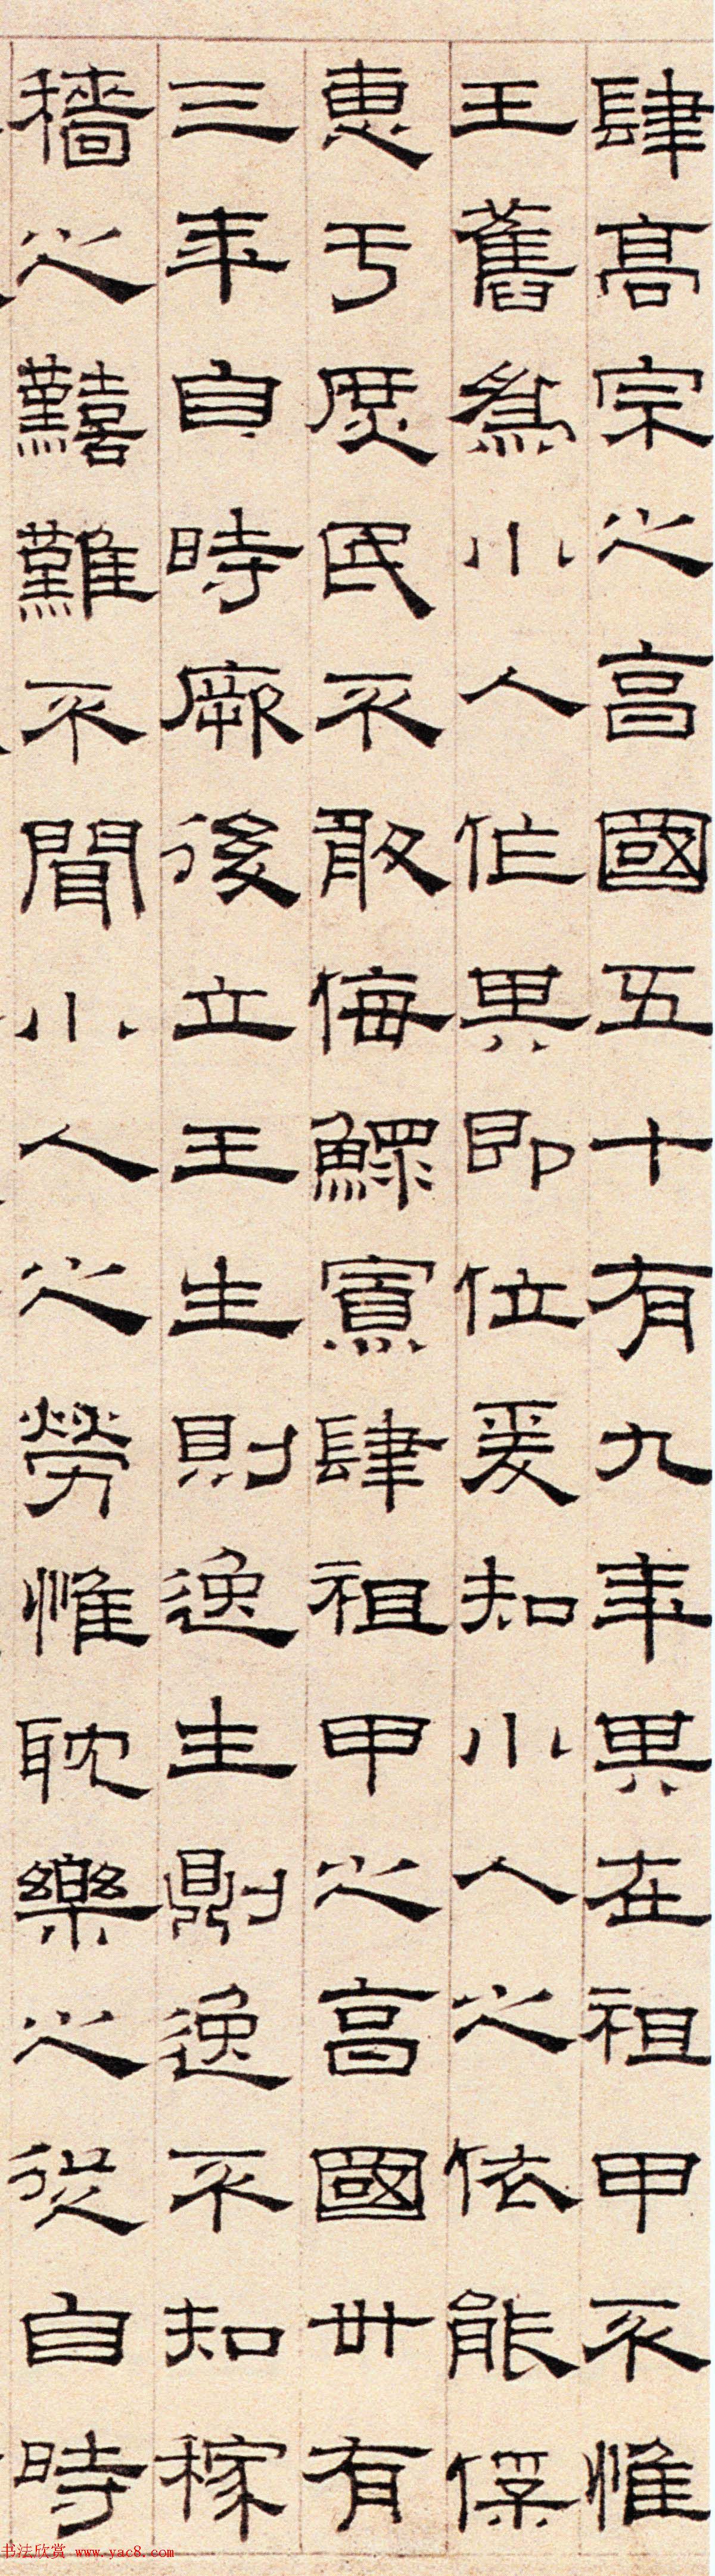 肆高宗之亯國五十有九年其在祖甲不惟
王舊為小人作其即位爰知小人之依能保
惠于庶民不敢侮鰥寡肆祖甲之亯國卅有
三年自時厥後立王生則逸生則逸不知稼
穡之囏難不聞小人之勞惟耽樂之從自時
书法欣赏 www.yac8.com